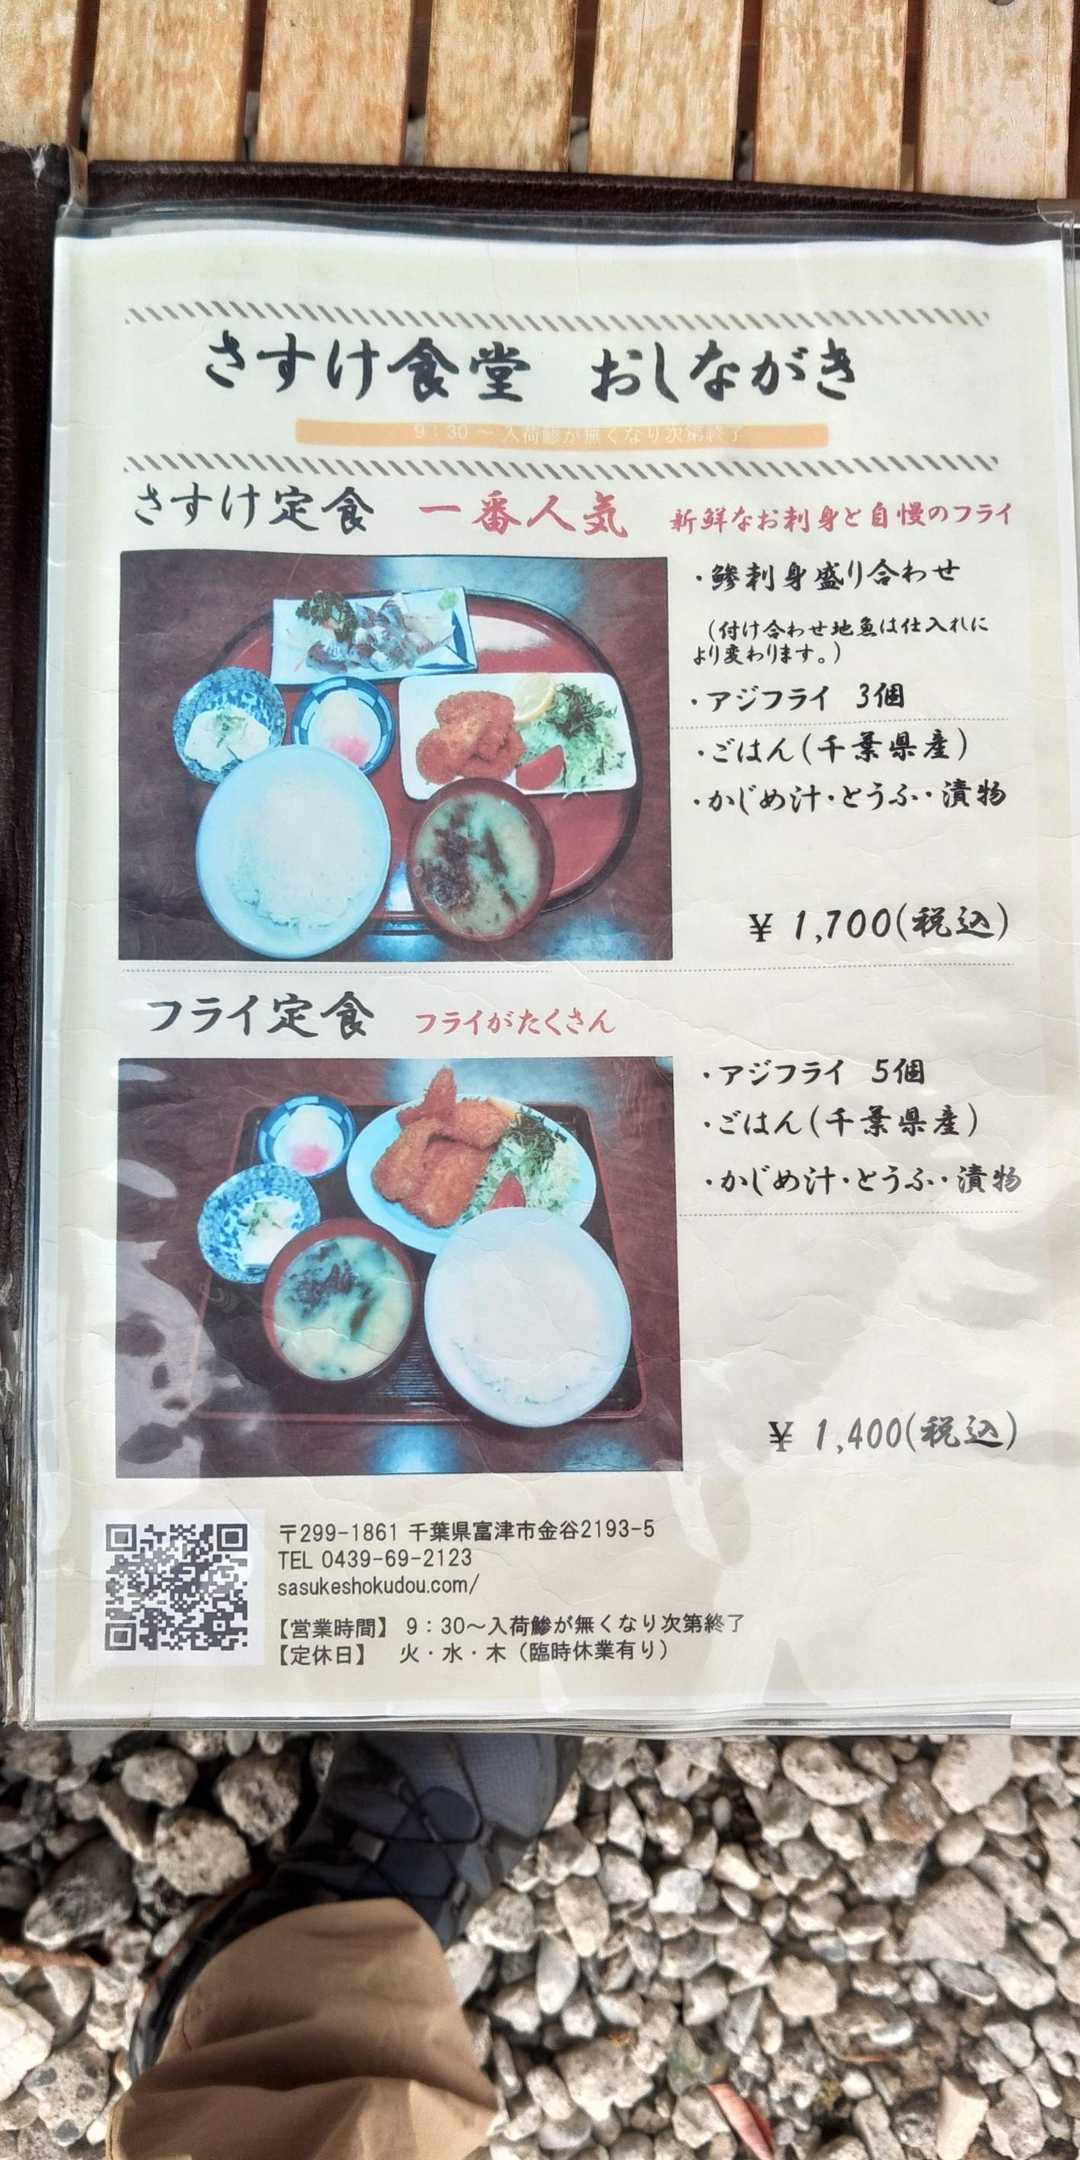 さすけ食堂 おしながき
9:30 ～ 入荷鯵が無くなり次第終了
さすけ定食 一番人気 新鮮なお刺身と自慢のフライ
・鯵刺身盛り合わせ
(付け合わせ地魚は仕入れに
より変わります。)
・アジフライ 3個
・ごはん(千葉県産)
・かじめ汁・とうふ・漬物
¥ 1,700(税込)
フライ定食 フライがたくさん
・アジフライ 5個
・ごはん(千葉県産)
・かじめ汁・とうふ・漬物
¥ 1,400(税込)
〒299-1861 千葉県富津市金谷2193-5
TEL 0439-69-2123
sasukeshokudou.com/
【営業時間】 9：30～入荷鯵が無くなり次第終了
【定休日】 火・水・木（臨時休業有り）